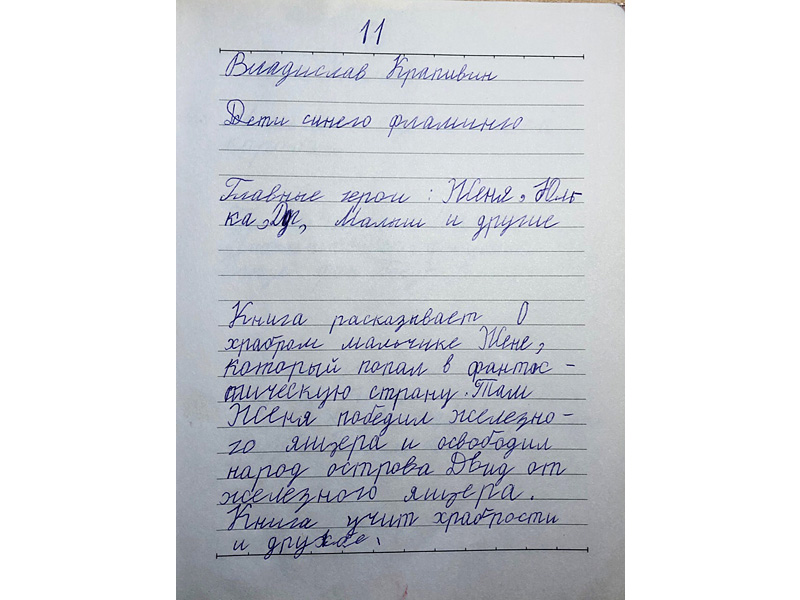 11
Владислав Крапивин
Дети синего фламинго
Главные герои : Женя, Юль
ка, Дуг, Малыш и другие
Книга расказывает О
храбром мальчике Жене,
который попал в фантас-
тическую страну. Там
Женя победил железно-
го ящера и освободил
народ острова Двид от
железного ящера.
Книга учит храбрости
и дружбе.